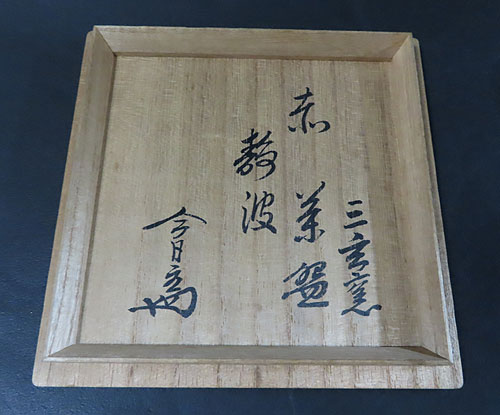 三玄窯
赤茶盌
波
今日庵